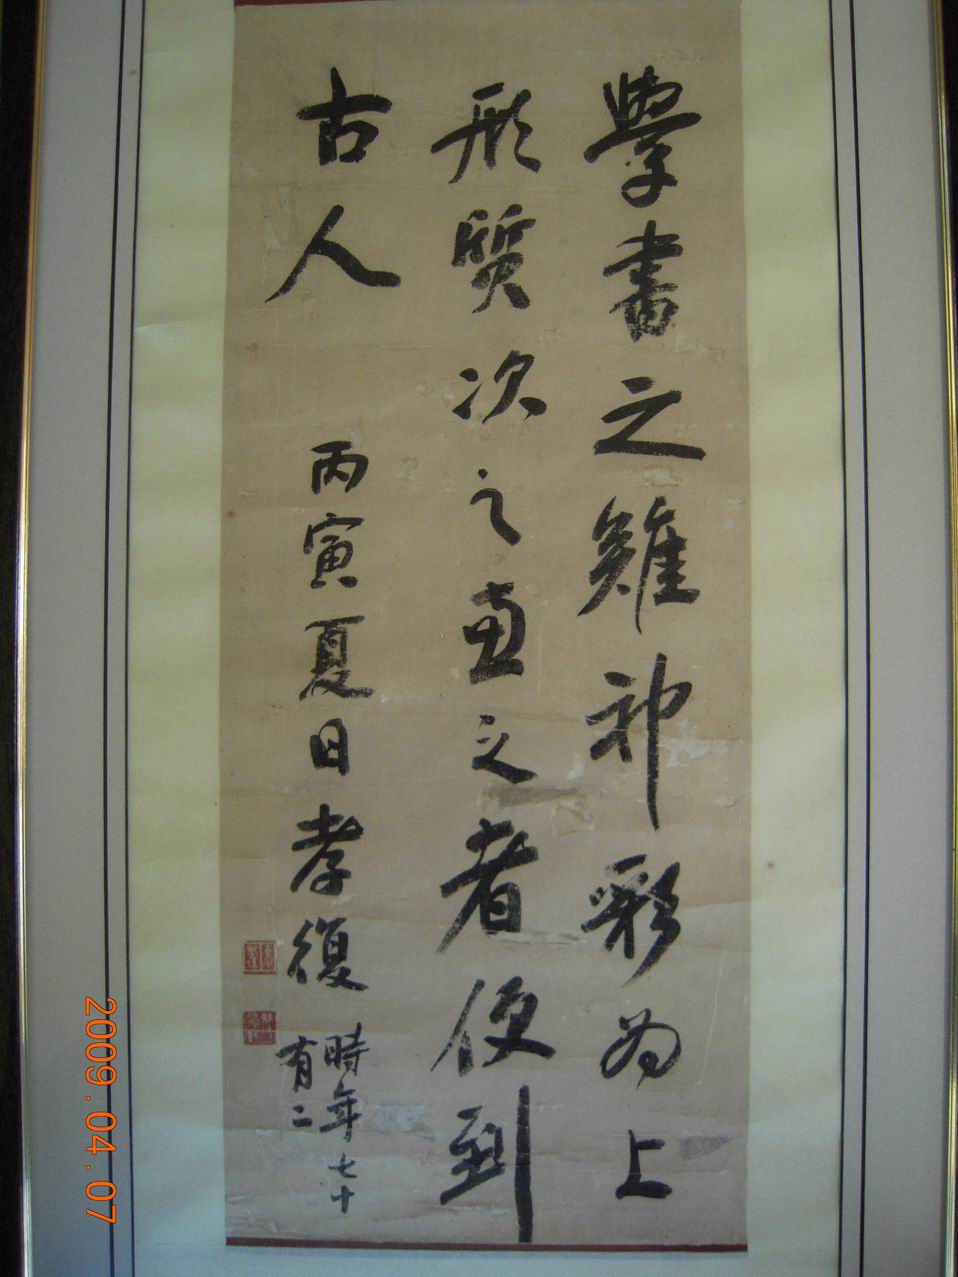 學書之難神彩為上
形質次之兼之者便到
古人
丙寅夏日孝復
時年七十
有二
2009.04.07